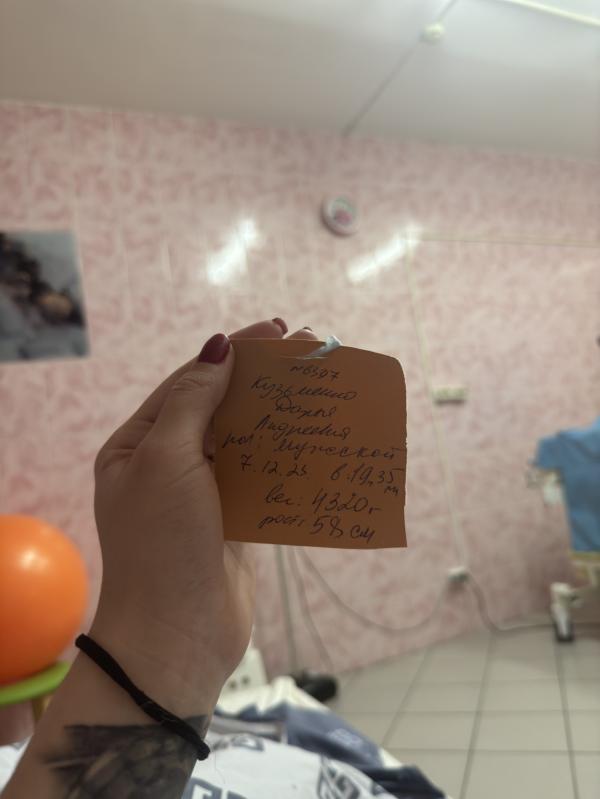 №6397
Кузьменко
Дарья
Андреевна
пол: мужской
7.12.23. в 19.35
вес: 4320 г
рост: 58 см